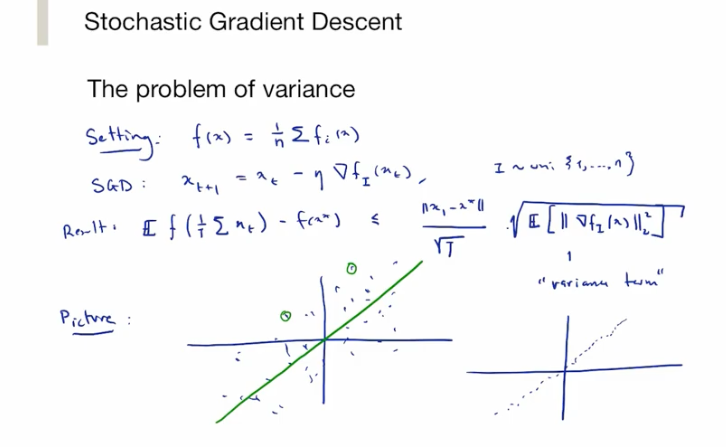 Stochastic Gradient Descent
The problem of variance
Setting: f(x) = 1/n Σ fᵢ(x)
SGD: xₜ₊₁ = xₜ − η ∇f_I(xₜ), I ~ uni. {1,...,n}
Result: 𝔼 f(1/T Σ xₜ) − f(x*) ≤ ‖x₁ − x*‖/√T · √(𝔼[‖∇f_I(x)‖₂²])
"variance term"
Picture: